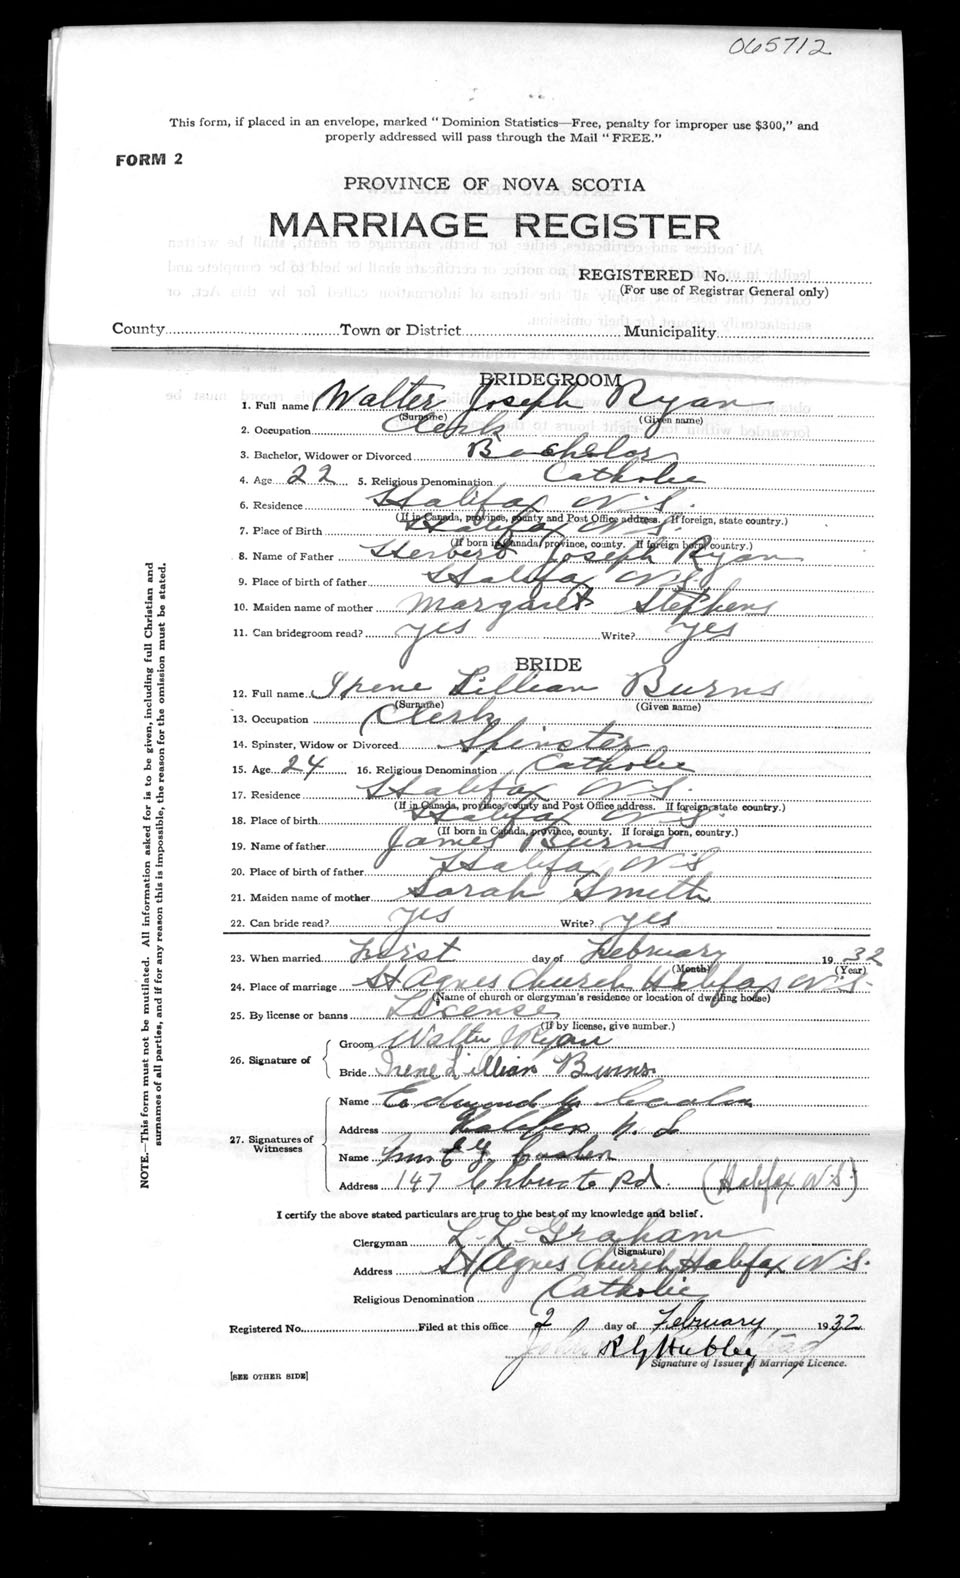 065712
This form, if placed in an envelope, marked " Dominion Statistics—Free, penalty for improper use $300," and
properly addressed will pass through the Mail " FREE."
FORM 2
PROVINCE OF NOVA SCOTIA
MARRIAGE REGISTER
REGISTERED No.
(For use of Registrar General only)
County Town or District Municipality
BRIDEGROOM
1. Full name Walter Joseph Ryan
(Surname) (Given name)
2. Occupation Clerk
3. Bachelor, Widower or Divorced Bachelor
4. Age 22 5. Religious Denomination Catholic
6. Residence Halifax N.S.
(If in Canada, province, county and Post Office address. If foreign, state country.)
7. Place of Birth Halifax N.S.
(If born in Canada, province, county. If foreign born, country.)
8. Name of Father Herbert Joseph Ryan
9. Place of birth of father Halifax N.S.
10. Maiden name of mother Margaret Stephens
11. Can bridegroom read? yes Write? yes
BRIDE
12. Full name Irene Lillian Burns
(Surname) (Given name)
13. Occupation Clerk
14. Spinster, Widow or Divorced Spinster
15. Age 24 16. Religious Denomination Catholic
17. Residence Halifax N.S.
(If in Canada, province, county and Post Office address. If foreign, state country.)
18. Place of birth Halifax N.S.
(If born in Canada, province, county. If foreign born, country.)
19. Name of father James Burns
20. Place of birth of father Halifax N.S
21. Maiden name of mother Sarah Smith
22. Can bride read? yes Write? yes
23. When married First day of February 1932
(Month) (Year)
24. Place of marriage St Agnes Church Halifax N.S.
(Name of church or clergyman's residence or location of dwelling house)
25. By license or banns License
(If by license, give number.)
26. Signature of
Groom Walter J Ryan
Bride Irene Lillian Burns
27. Signatures of Witnesses
Name Edmond
Address Halifax N.S
Name Mrs
Address 147 Chebucto Rd. (Halifax N.S.)
I certify the above stated particulars are true to the best of my knowledge and belief.
Clergyman L. L. Graham
(Signature)
Address St Agnes Church Halifax N.S.
Religious Denomination Catholic
Registered No. Filed at this office 2 day of February 1932
R G Hubley
Signature of Issuer of Marriage Licence.
[SEE OTHER SIDE]
NOTE.—This form must not be mutilated. All information asked for is to be given, including full Christian and
surnames of all parties, and if for any reason this is impossible, the reason for the omission must be stated.